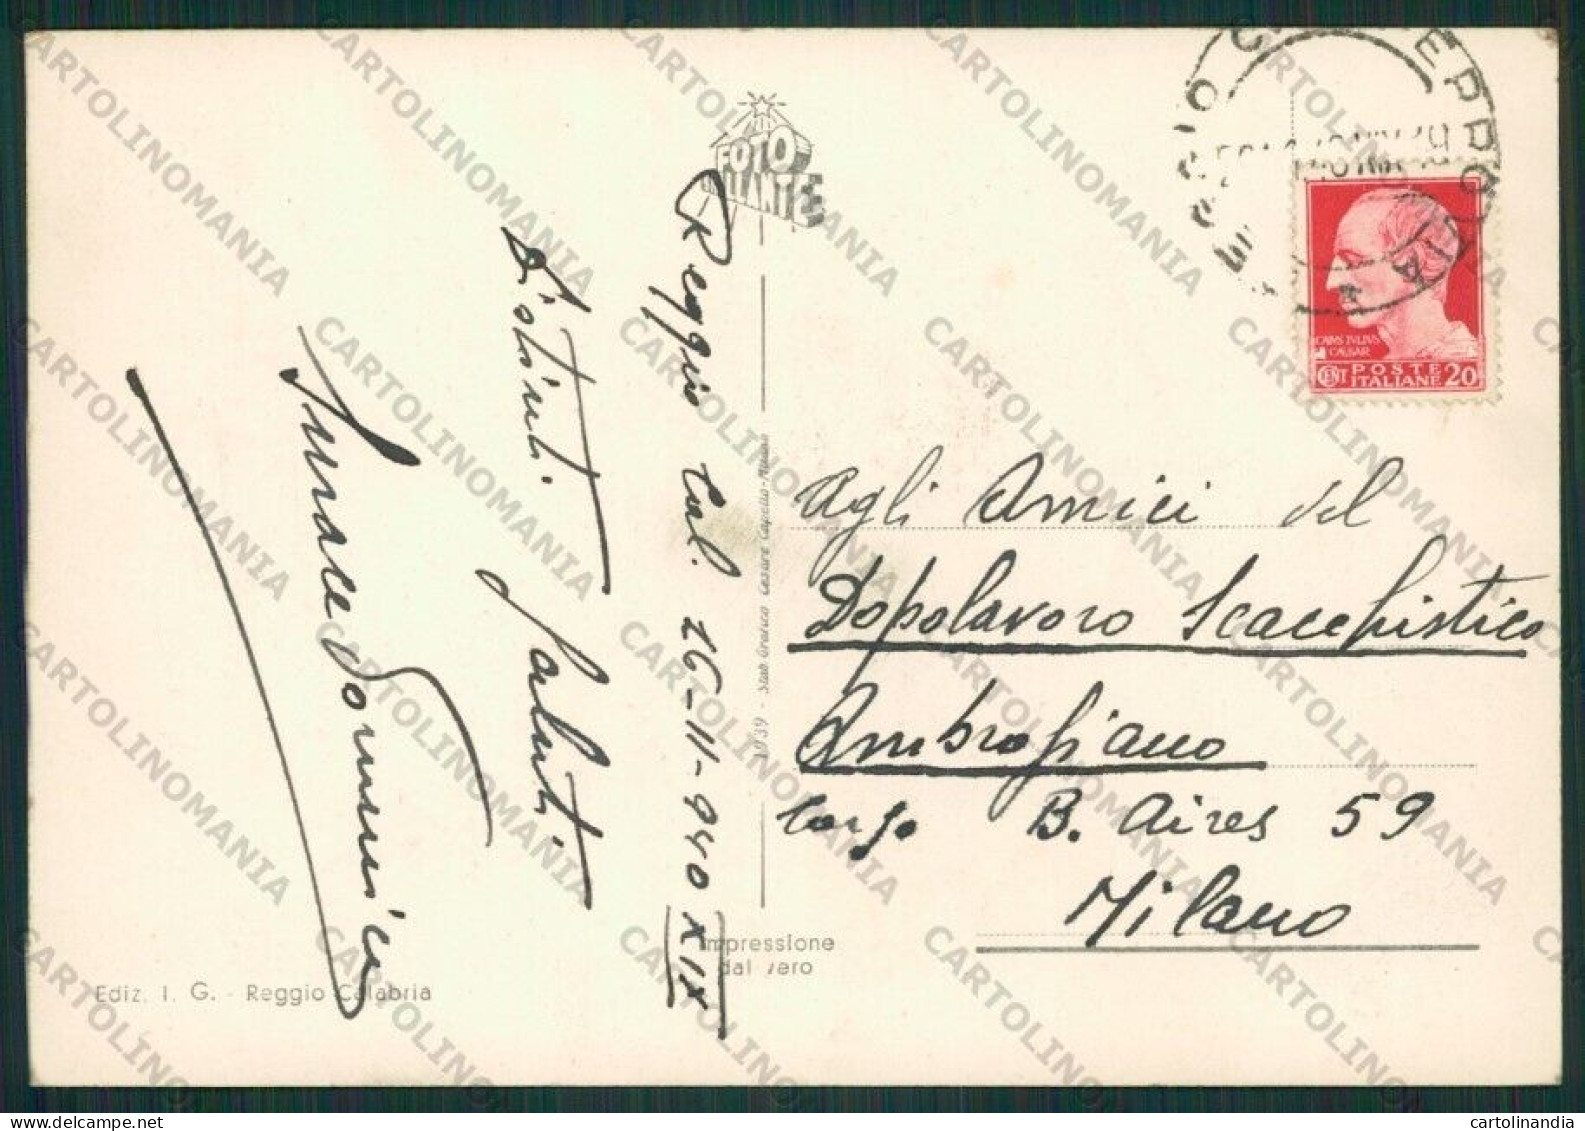 FOTO
Reggio Cal. 26-11-940 XIX
Distinti
Saluti
Ediz. I. G. - Reggio Calabria
1939 - Stab Grafico Cesare Capello-Milano
Impressione
dal vero
CAIUS IULIUS
CAESAR
CENT POSTE
ITALIANE 20
Agli Amici del
Dopolavoro Scacchistico
Ambrosiano
Corso B. Aires 59
Milano
CARTOLINOMANIA
cartolinandia